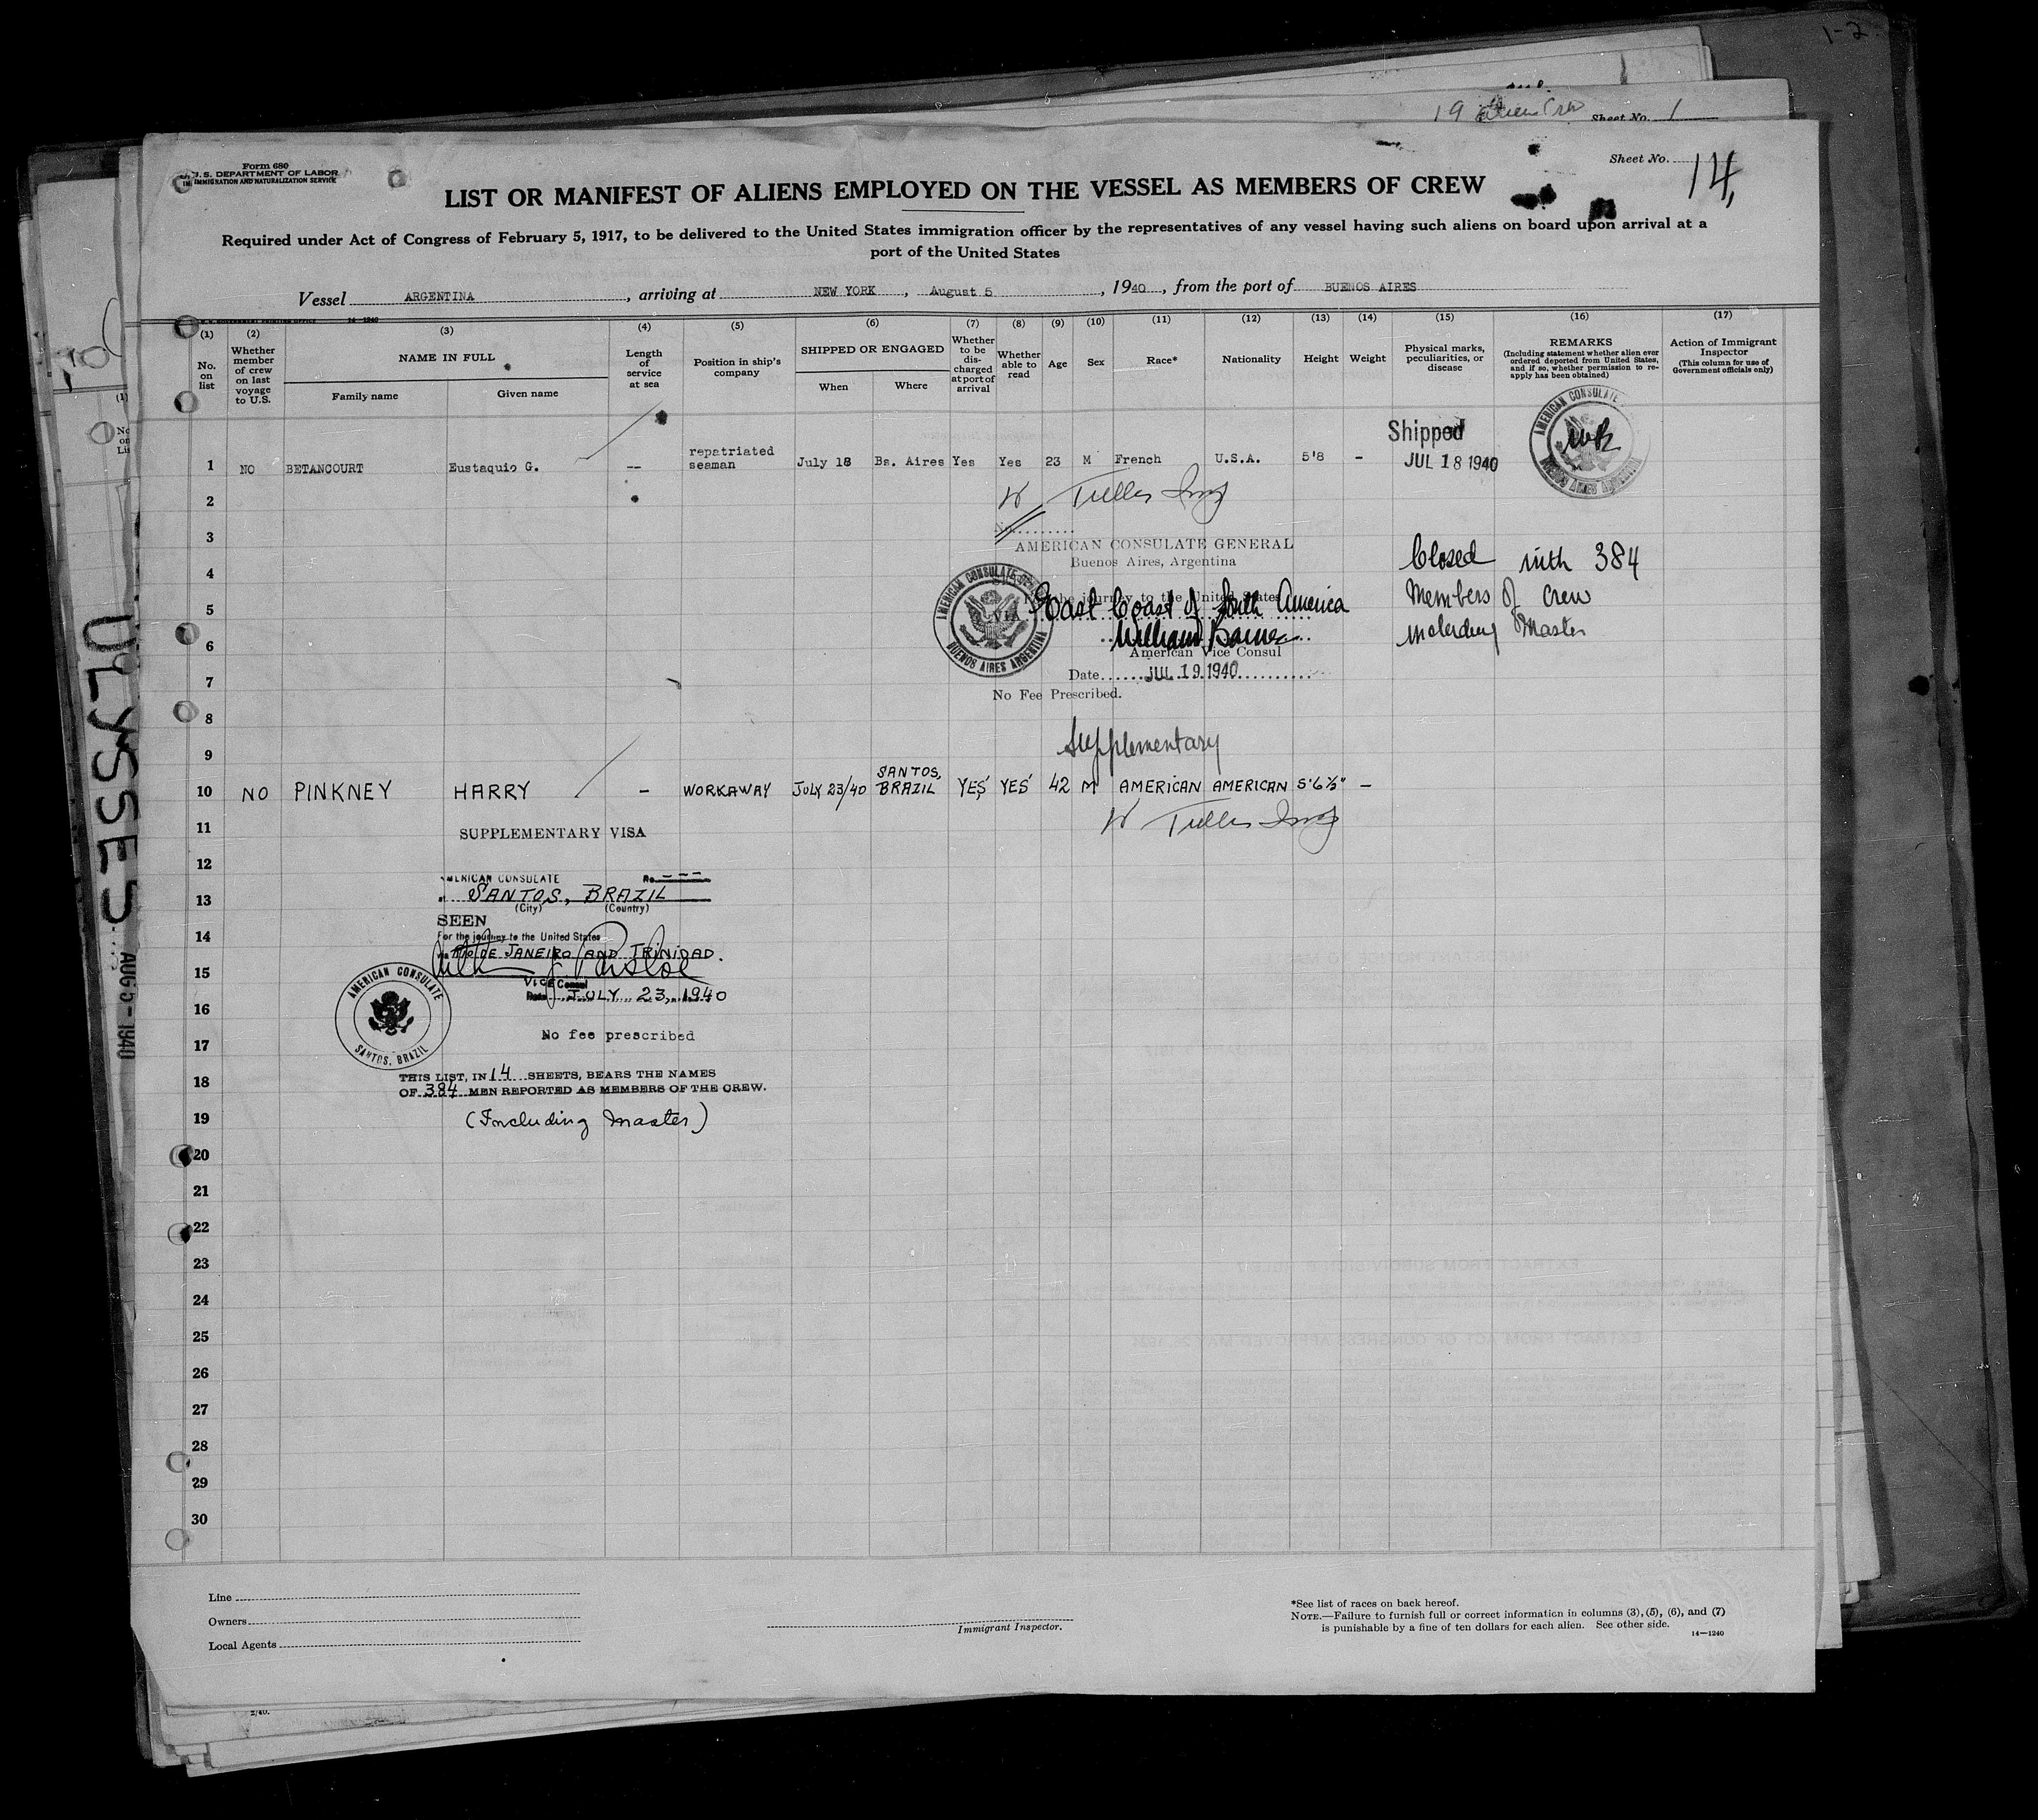 1-2
19 Aliens Crew Sheet No. 1
Form 680
U.S. DEPARTMENT OF LABOR
IMMIGRATION AND NATURALIZATION SERVICE
Sheet No. 14,
LIST OR MANIFEST OF ALIENS EMPLOYED ON THE VESSEL AS MEMBERS OF CREW
Required under Act of Congress of February 5, 1917, to be delivered to the United States immigration officer by the representatives of any vessel having such aliens on board upon arrival at a
port of the United States
Vessel ARGENTINA, arriving at NEW YORK, August 5, 1940, from the port of BUENOS AIRES
U.S. GOVERNMENT PRINTING OFFICE 14-1240
(1) (2) (3) (4) (5) (6) (7) (8) (9) (10) (11) (12) (13) (14) (15) (16) (17)
No. on list
Whether member of crew on last voyage to U.S.
NAME IN FULL
Family name Given name
Length of service at sea
Position in ship's company
SHIPPED OR ENGAGED
When Where
Whether to be discharged at port of arrival
Whether able to read
Age
Sex
Race*
Nationality
Height
Weight
Physical marks, peculiarities, or disease
REMARKS
(Including statement whether alien ever ordered deported from United States, and if so, whether permission to reapply has been obtained)
Action of Immigrant Inspector
(This column for use of Government officials only)
Shipped
JUL 18 1940
AMERICAN CONSULATE
BUENOS AIRES ARGENTINA
1 NO BETANCOURT Eustaquio G. -- repatriated seaman July 18 Bs. Aires Yes Yes 23 M French U.S.A. 5'8 -
2
3
No.
AMERICAN CONSULATE GENERAL
Buenos Aires, Argentina
Closed with 384
Members of Crew
including Master
4
AMERICAN CONSULATE
BUENOS AIRES ARGENTINA
the journey to the United States
5
VIA East Coast of South America
6
American Vice Consul
7
Date JUL 19 1940
No Fee Prescribed.
8
9
Supplementary
10 NO PINKNEY HARRY - WORKAWAY JULY 23/40 SANTOS, BRAZIL YES YES 42 M AMERICAN AMERICAN 5'6½" -
11
SUPPLEMENTARY VISA
12
AMERICAN CONSULATE No. ---
13
SANTOS, BRAZIL
(City) (Country)
SEEN
14
For the journey to the United States
via RIO DE JANEIRO AND TRINIDAD.
15
AMERICAN CONSULATE
SANTOS, BRAZIL
Vice Consul
Date JULY 23, 1940
16
No fee prescribed
17
THIS LIST, IN 14 SHEETS, BEARS THE NAMES
18
OF 384 MEN REPORTED AS MEMBERS OF THE CREW.
19
(Including Master)
20
21
22
23
24
25
26
27
28
29
30
Line
Owners
Local Agents
Immigrant Inspector.
*See list of races on back hereof.
NOTE.—Failure to furnish full or correct information in columns (3), (5), (6), and (7)
is punishable by a fine of ten dollars for each alien. See other side.
14—1240
ULYSSES
AUG 5 - 1940
2/40.